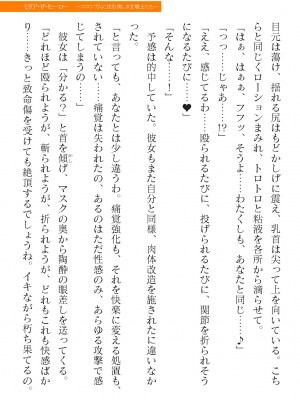 目元は蕩け、揺れる尻はもどかしげに震え、乳首は尖って上を向いている。こち
らと同じくローションまみれ、トロトロと粘液を各所から滴らせて。
「はぁ、はぁ、フフッ、そうよ……わたくしも、あなたと同じ……♪」
「っっ……じゃあ……!?」
「ええ、感じてるわ……殴られるたびに、投げられるたびに、関節を折られそう
になるたびに……♥」
「そんな……!」
予感は的中していた。彼女もまた自分と同様、肉体改造を施されたに違いなか
った。
「と言っても、あなたとは少し違うわ。痛覚強化も、それを快楽に変える処置も、
されていない……痛覚は失われたの、あるのはただ性感のみ、あらゆる攻撃で感
じてしまうの」
彼女は「分かる?」と首を傾げ、マスクの奥から陶酔の眼差しを送ってくる。
「どれほど殴られようが、斬られようが、折られようが、どれもこれも快感ばか
り……きっと致命傷を受けても絶頂するでしょうね。イキながら朽ち果てるの。